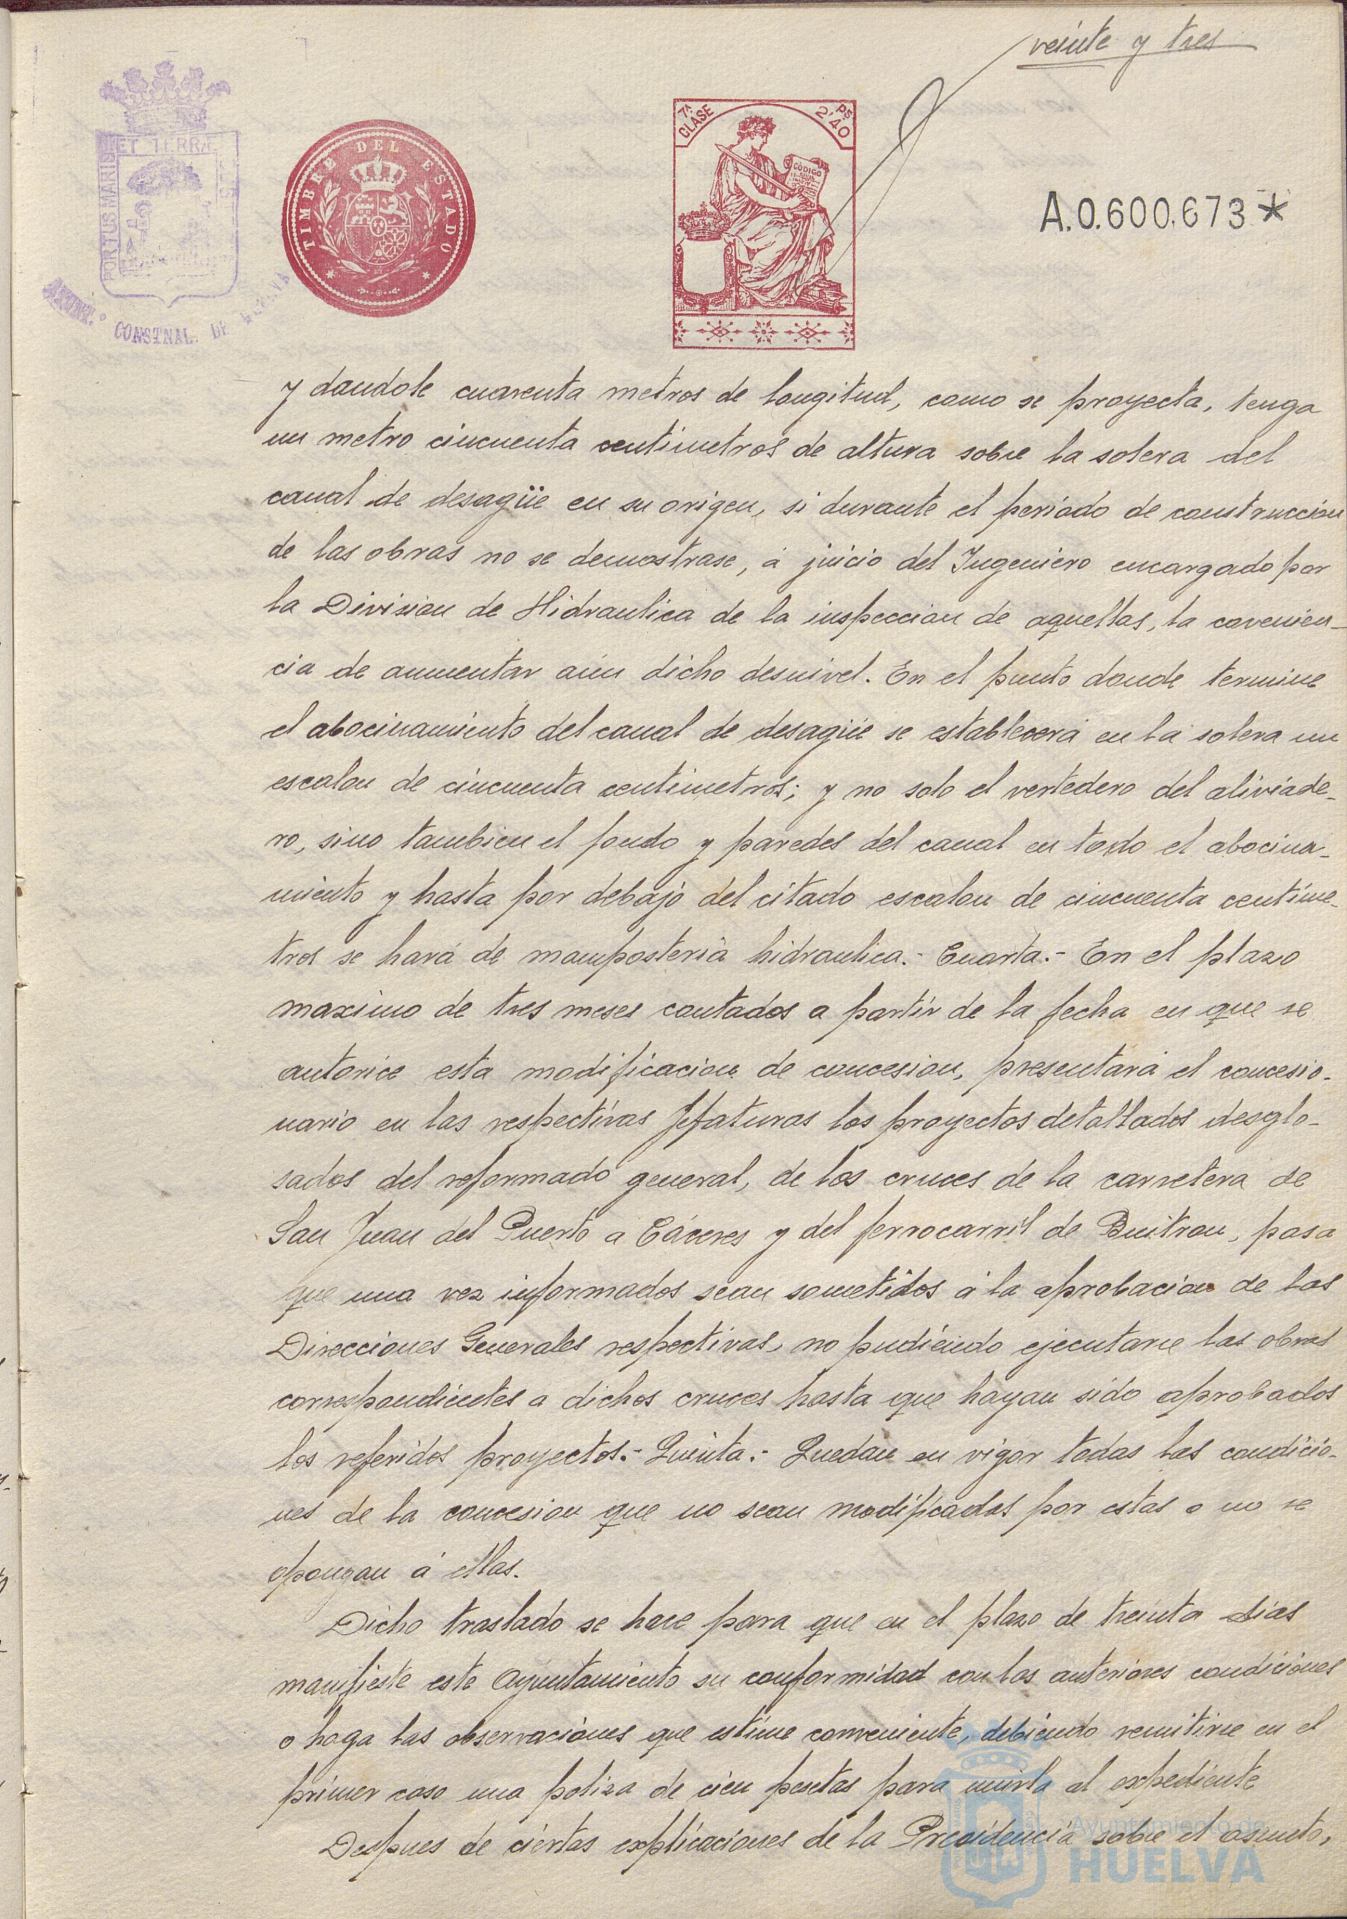 veinte y tres
PORTUS MARIS ET TERRÆ
AYUNT.º CONSTNAL. DE HUELVA
TIMBRE DEL ESTADO
7ª CLASE
PS 2'40
CODIGO
A.0.600.673*
y dandole cuarenta metros de longitud, como se proyecta, tenga
un metro cincuenta centimetros de altura sobre la solera del
canal de desagüe en su origen, si durante el periodo de construccion
de las obras no se demostrase, á juicio del Ingeniero encargado por
la Division de Hidraulica de la inspeccion de aquellas, la covenien-
cia de aumentar aún dicho desnivel. En el punto donde termine
el abocinamiento del canal de desagüe se establecerá en la solera un
escalon de cincuenta centimetros; y no solo el vertedero del aliviade-
ro, sino tambien el fondo y paredes del canal en todo el abocina-
miento y hasta por debajo del citado escalon de cincuenta centime-
tros se hará de mamposteria hidraulica.- Cuarta.- En el plazo
maximo de tres meses contados a partir de la fecha en que se
autorice esta modificacion de concesion, presentará el concesio-
nario en las respectivas Jefaturas los proyectos detallados desglo-
sados del reformado general, de los cruces de la carretera de
San Juan del Puerto a Cáceres y del ferrocarril de Buitron, pasa
que una vez informados sean sometidos á la aprobacion de las
Direcciones Generales respectivas, no pudiendo ejecutarse las obras
correspondientes a dichos cruces hasta que hayan sido aprobados
los referidos proyectos.- Quinta.- Quedan en vigor todas las condicio-
nes de la concesion que no sean modificadas por estas o no se
opongan á ellas.
Dicho traslado se hace para que en el plazo de treinta dias
manifieste este Ayuntamiento su conformidad con las anteriores condiciones
o haga las observaciones que estime conveniente, debiendo remitirse en el
primer caso una poliza de cien pesetas para unirla al expediente
Despues de ciertas explicaciones de la Presidencia sobre el asunto,
Ayuntamiento de
HUELVA